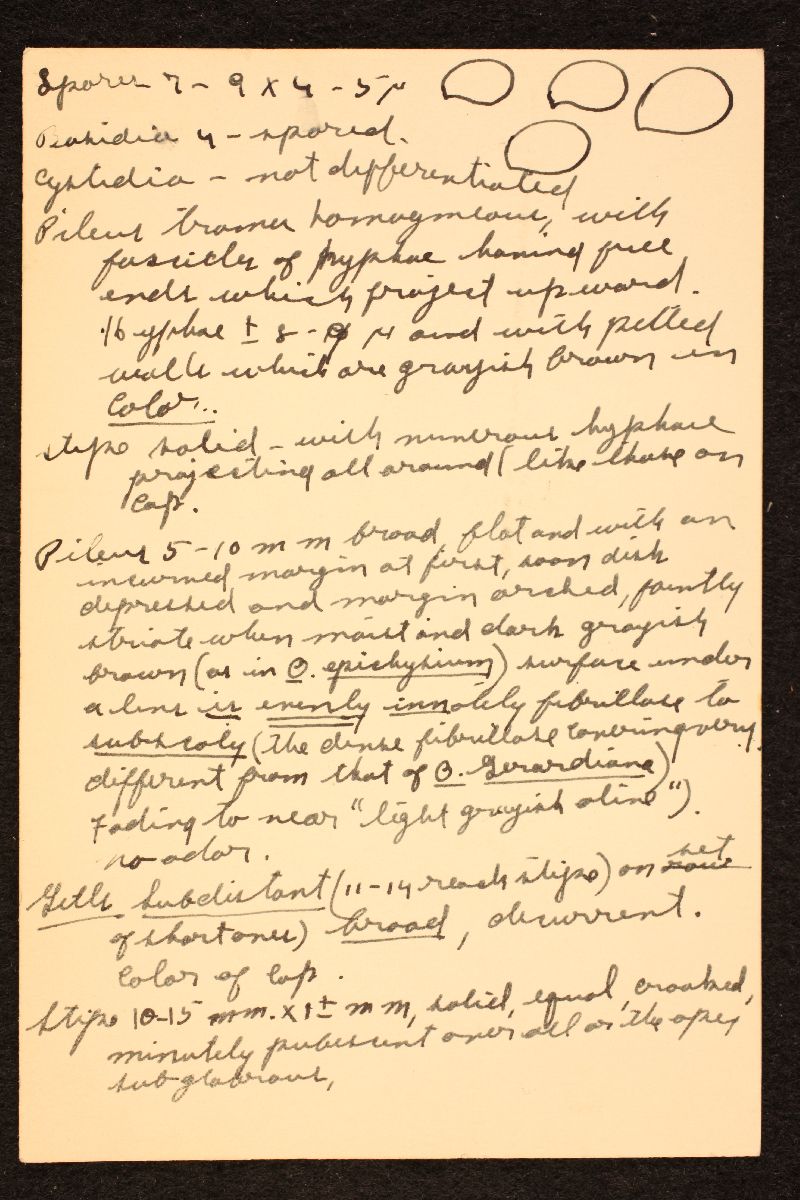 Spores 7 - 9 x 4 - 5 μ
Basidia 4 - spored.
Cystidia - not differentiated
Pileus trama homogeneous, with
fascicles of hyphae having free
ends which project upward.
Hyphae ± 8 - 9 μ and with pitted
walls which are grayish brown in
color..
Stipe solid - with numerous hyphae
projecting all around (like those on
cap.
Pileus 5-10 mm broad, flat and with an
incurved margin at first, soon disk
depressed and margin arched, faintly
striate when moist and dark grayish
brown (as in O. epichysium) surface under
a lens is evenly innately fibrillose to
subscaly (the dense fibrillose covering very
different from that of O. Gerardiana)
Fading to near "light grayish olive").
no odor.
Gills subdistant (11-14 reach stipe) on set
of short ones) broad, decurrent.
Color of cap.
Stipe 10-15 mm. x 1± mm, solid, equal, crooked,
minutely pubescent over all or the apex
subglabrous,